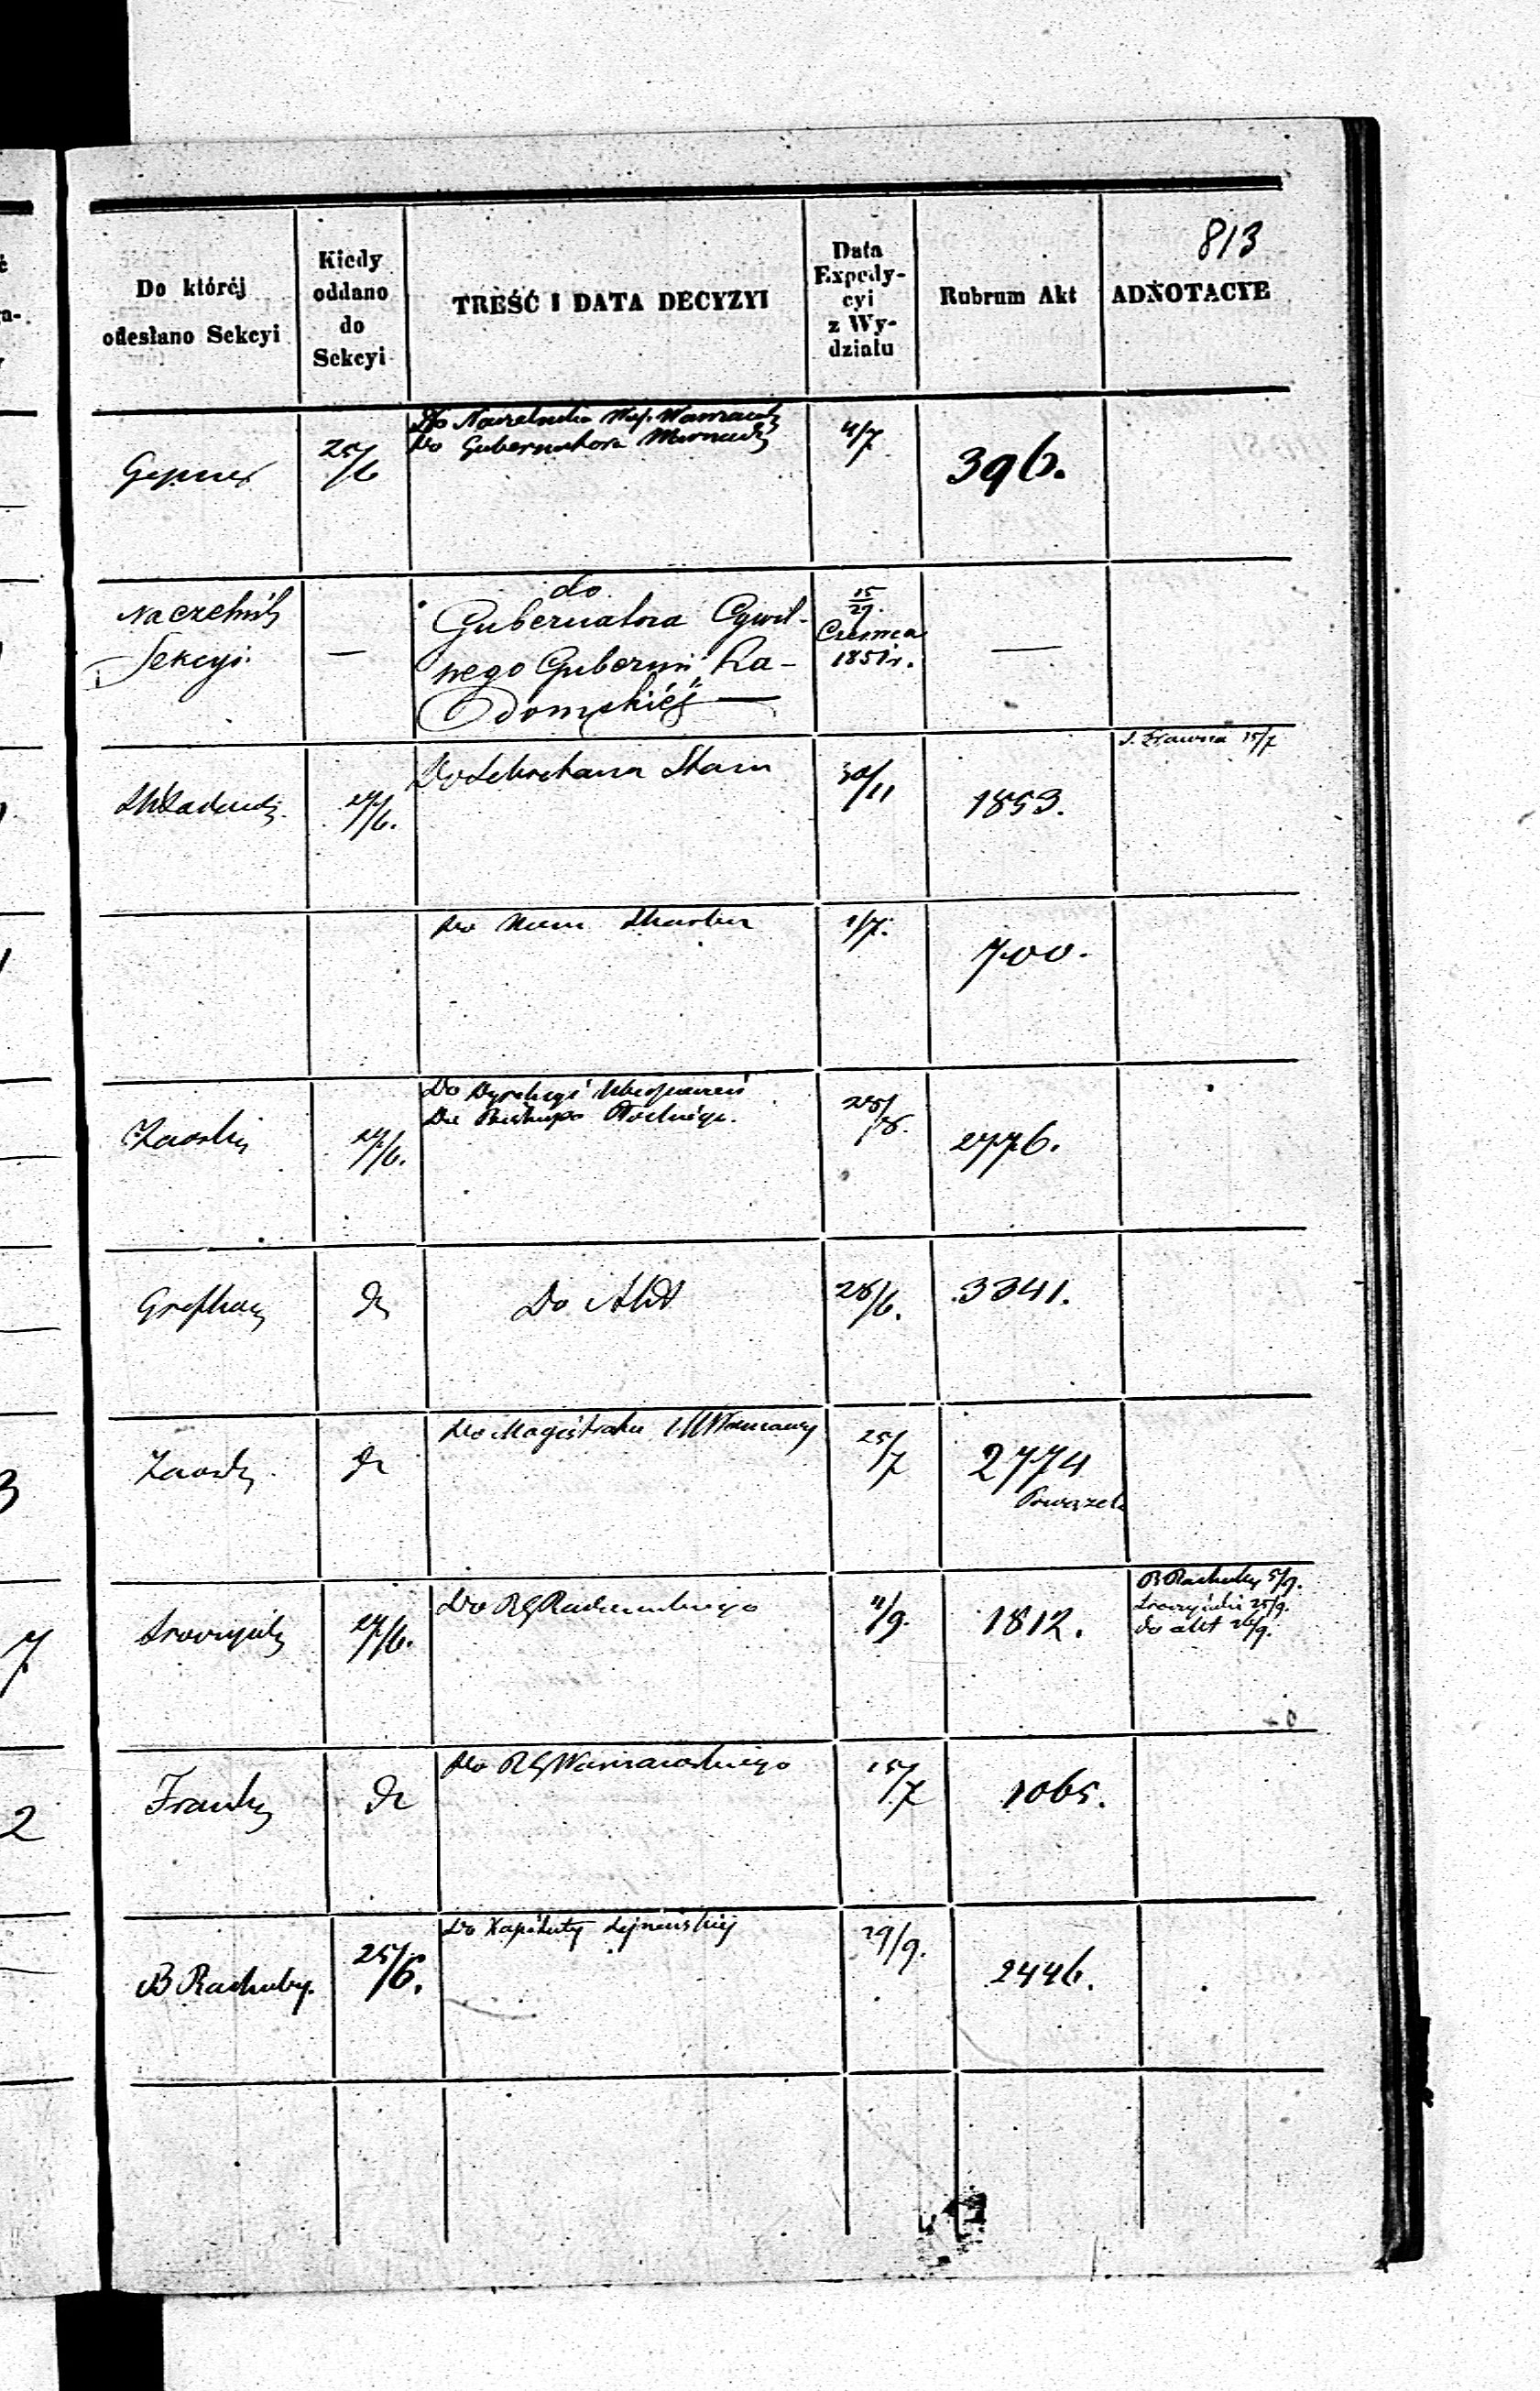 813
Do któréj
odesłano Sekcyi
Kiedy
oddano
do
Sekcyi
TREŚĆ I DATA DECYZYI
Data
Expedy-
cyi
z Wy-
działu
Rubrum Akt
ADNOTACYE
Gepner
25/6
Do Naczelnika
Do Gubernatora
4/7
396.
Naczelnik
Sekcyi
—
do
Gubernatora Cywil-
nego Gubernii Ra-
domskiéj —
15
27.
Czerwca
1851 r.
—
27/6.
Do Sekretarza Stanu
30/11
1853.
15/7
Do Kom Skarbu
1/7.
700.
Zaorski
27/6.
Do Dyrekcyi Ubezpieczeń
Do Biskupa Płockiego.
25/8.
2776.
Do Akt
28/6.
3341.
Zaorski
Do Magistratu M Warszawy
25/7
2774
Powązek
27/6.
Do RG Radomskiego
4/9.
1812.
B Rachuby 5/9.
25/9.
do akt 26/9.
Do RG Warszawskiego
15/7
1065.
B Rachuby.
25/6.
Do Kapituły Sejneńskiej
29/9.
2446.